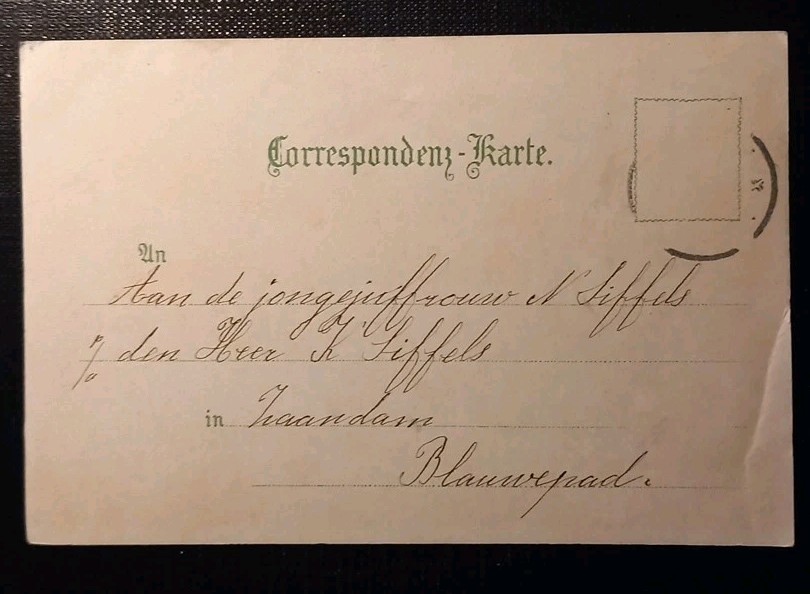 Correspondenz-Karte.
An
Aan de jongejuffrouw N Siffels
p/a den Heer K Siffels
in Zaandam
Blauwepad.